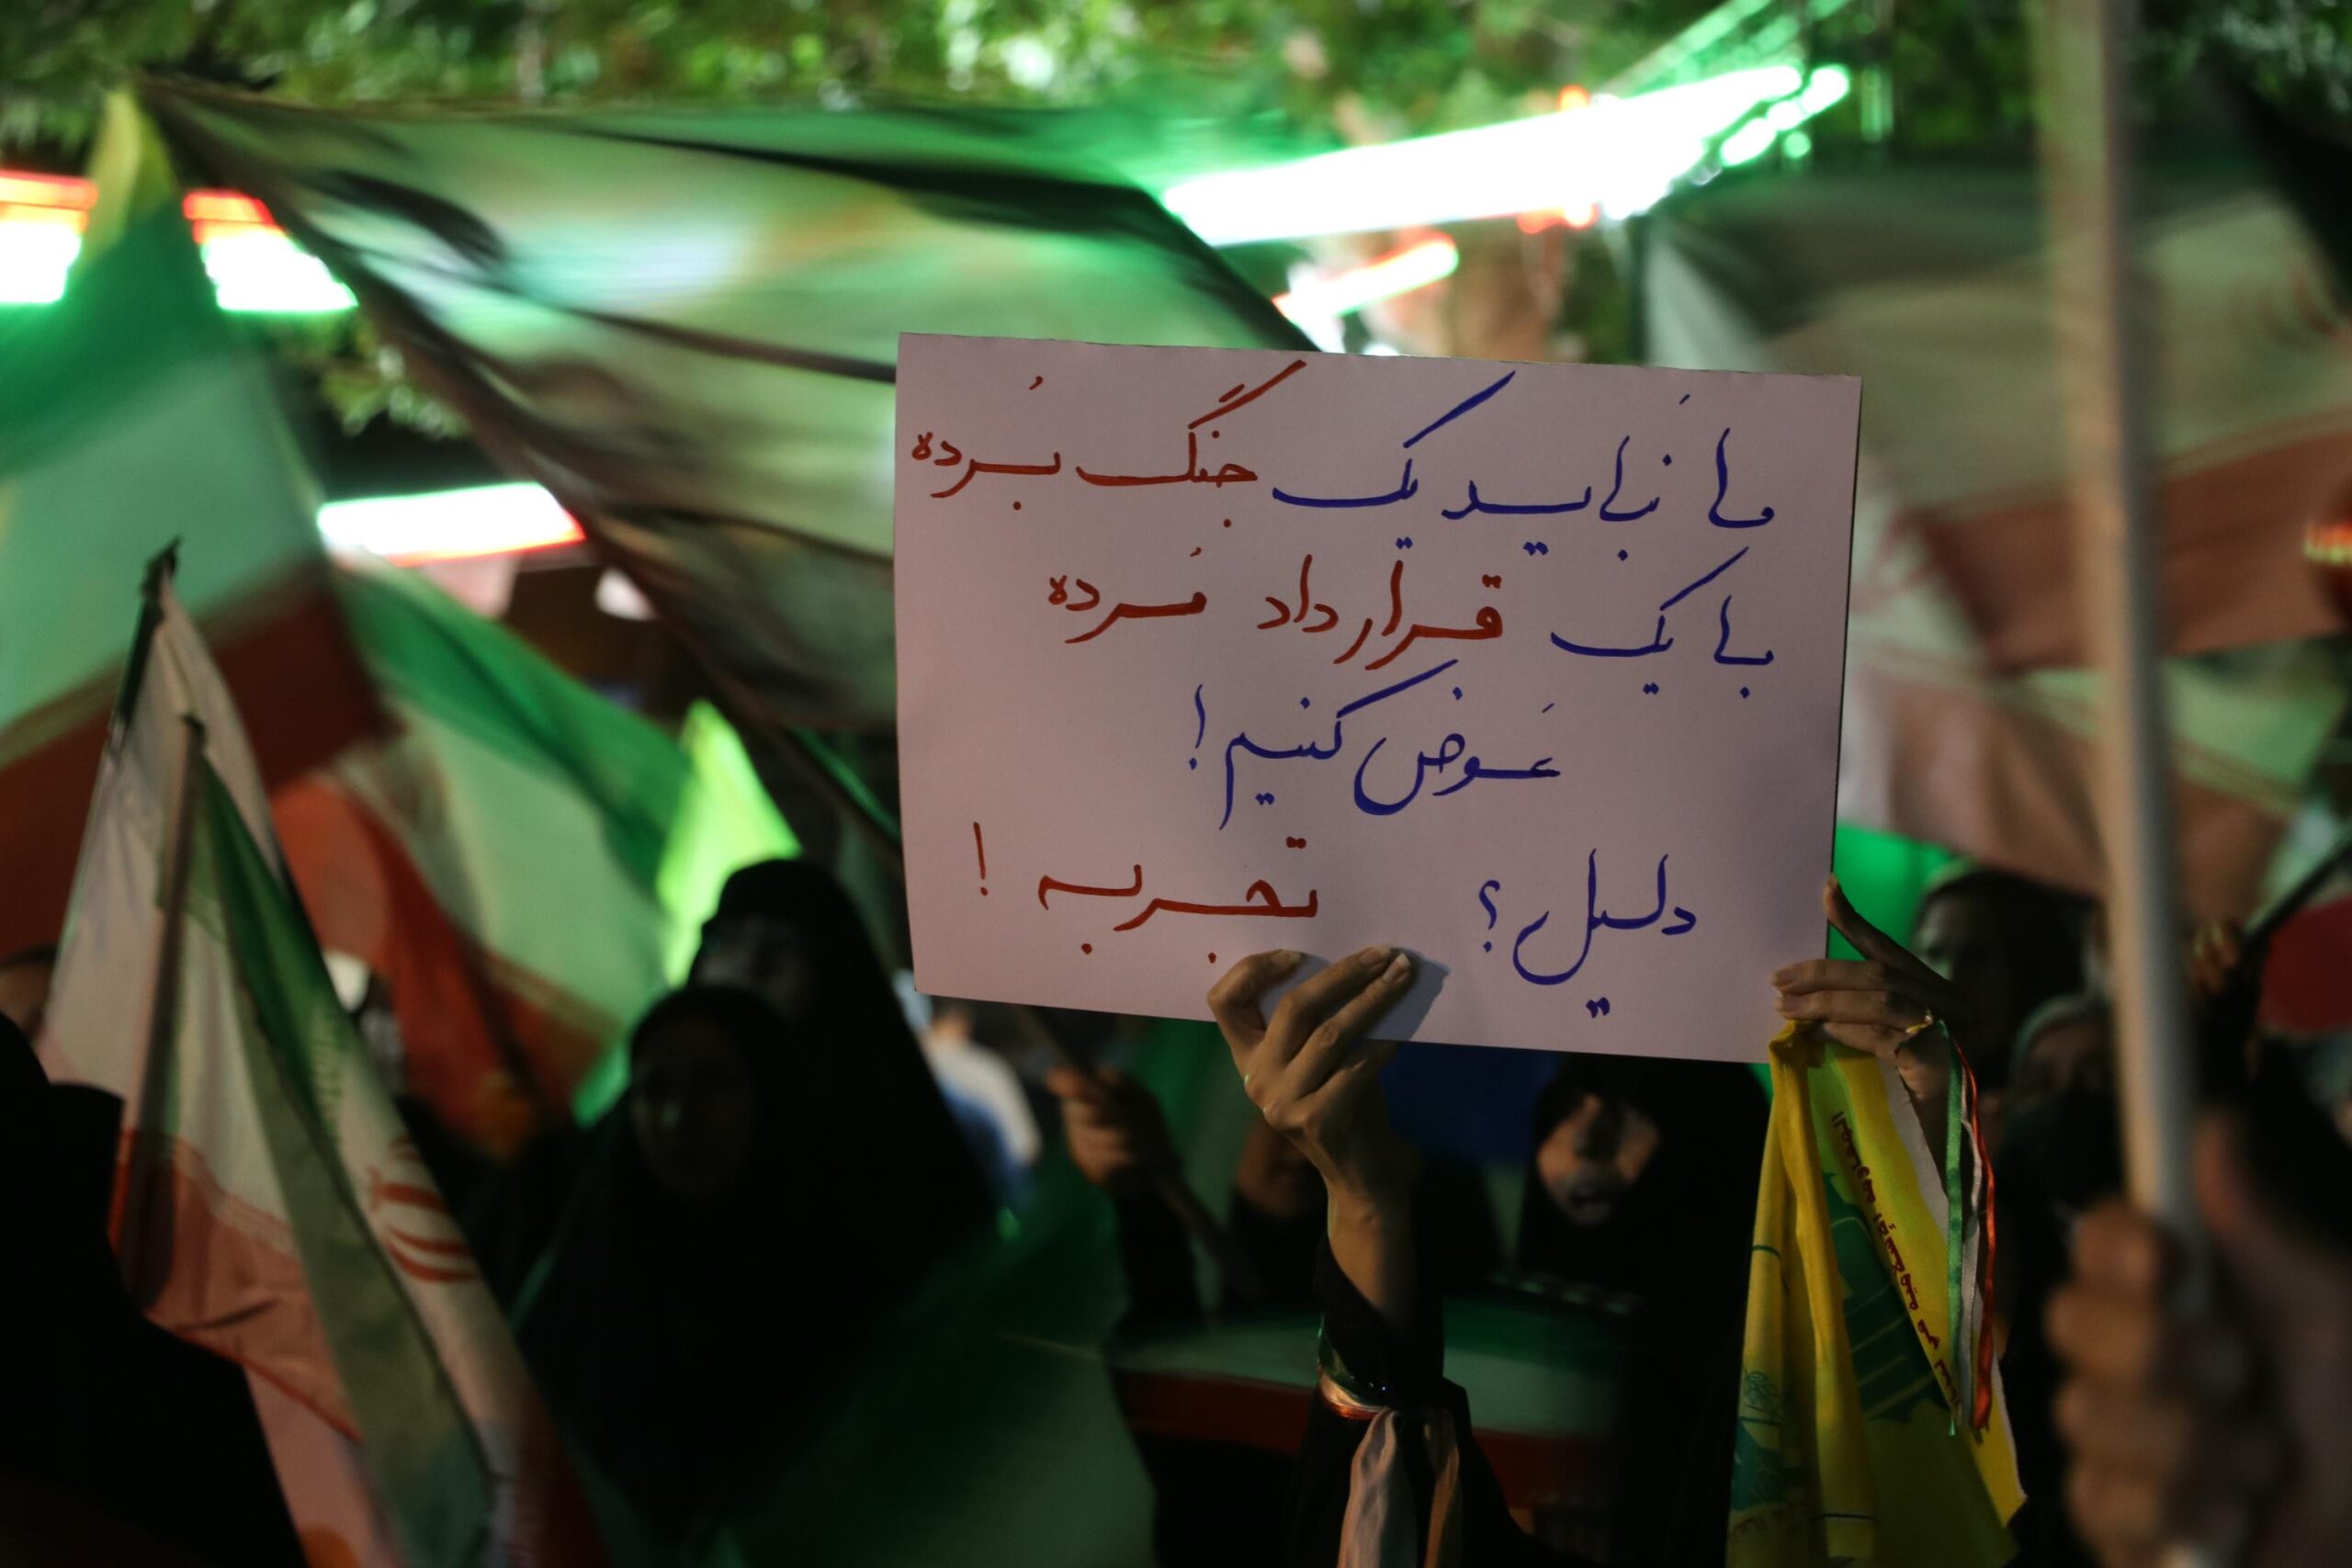 ما نَبایــد یک جنگ بُـرده
با یک قـرارداد مُـرده
عَـوض کنیم!
دلیل؟ تجربه!